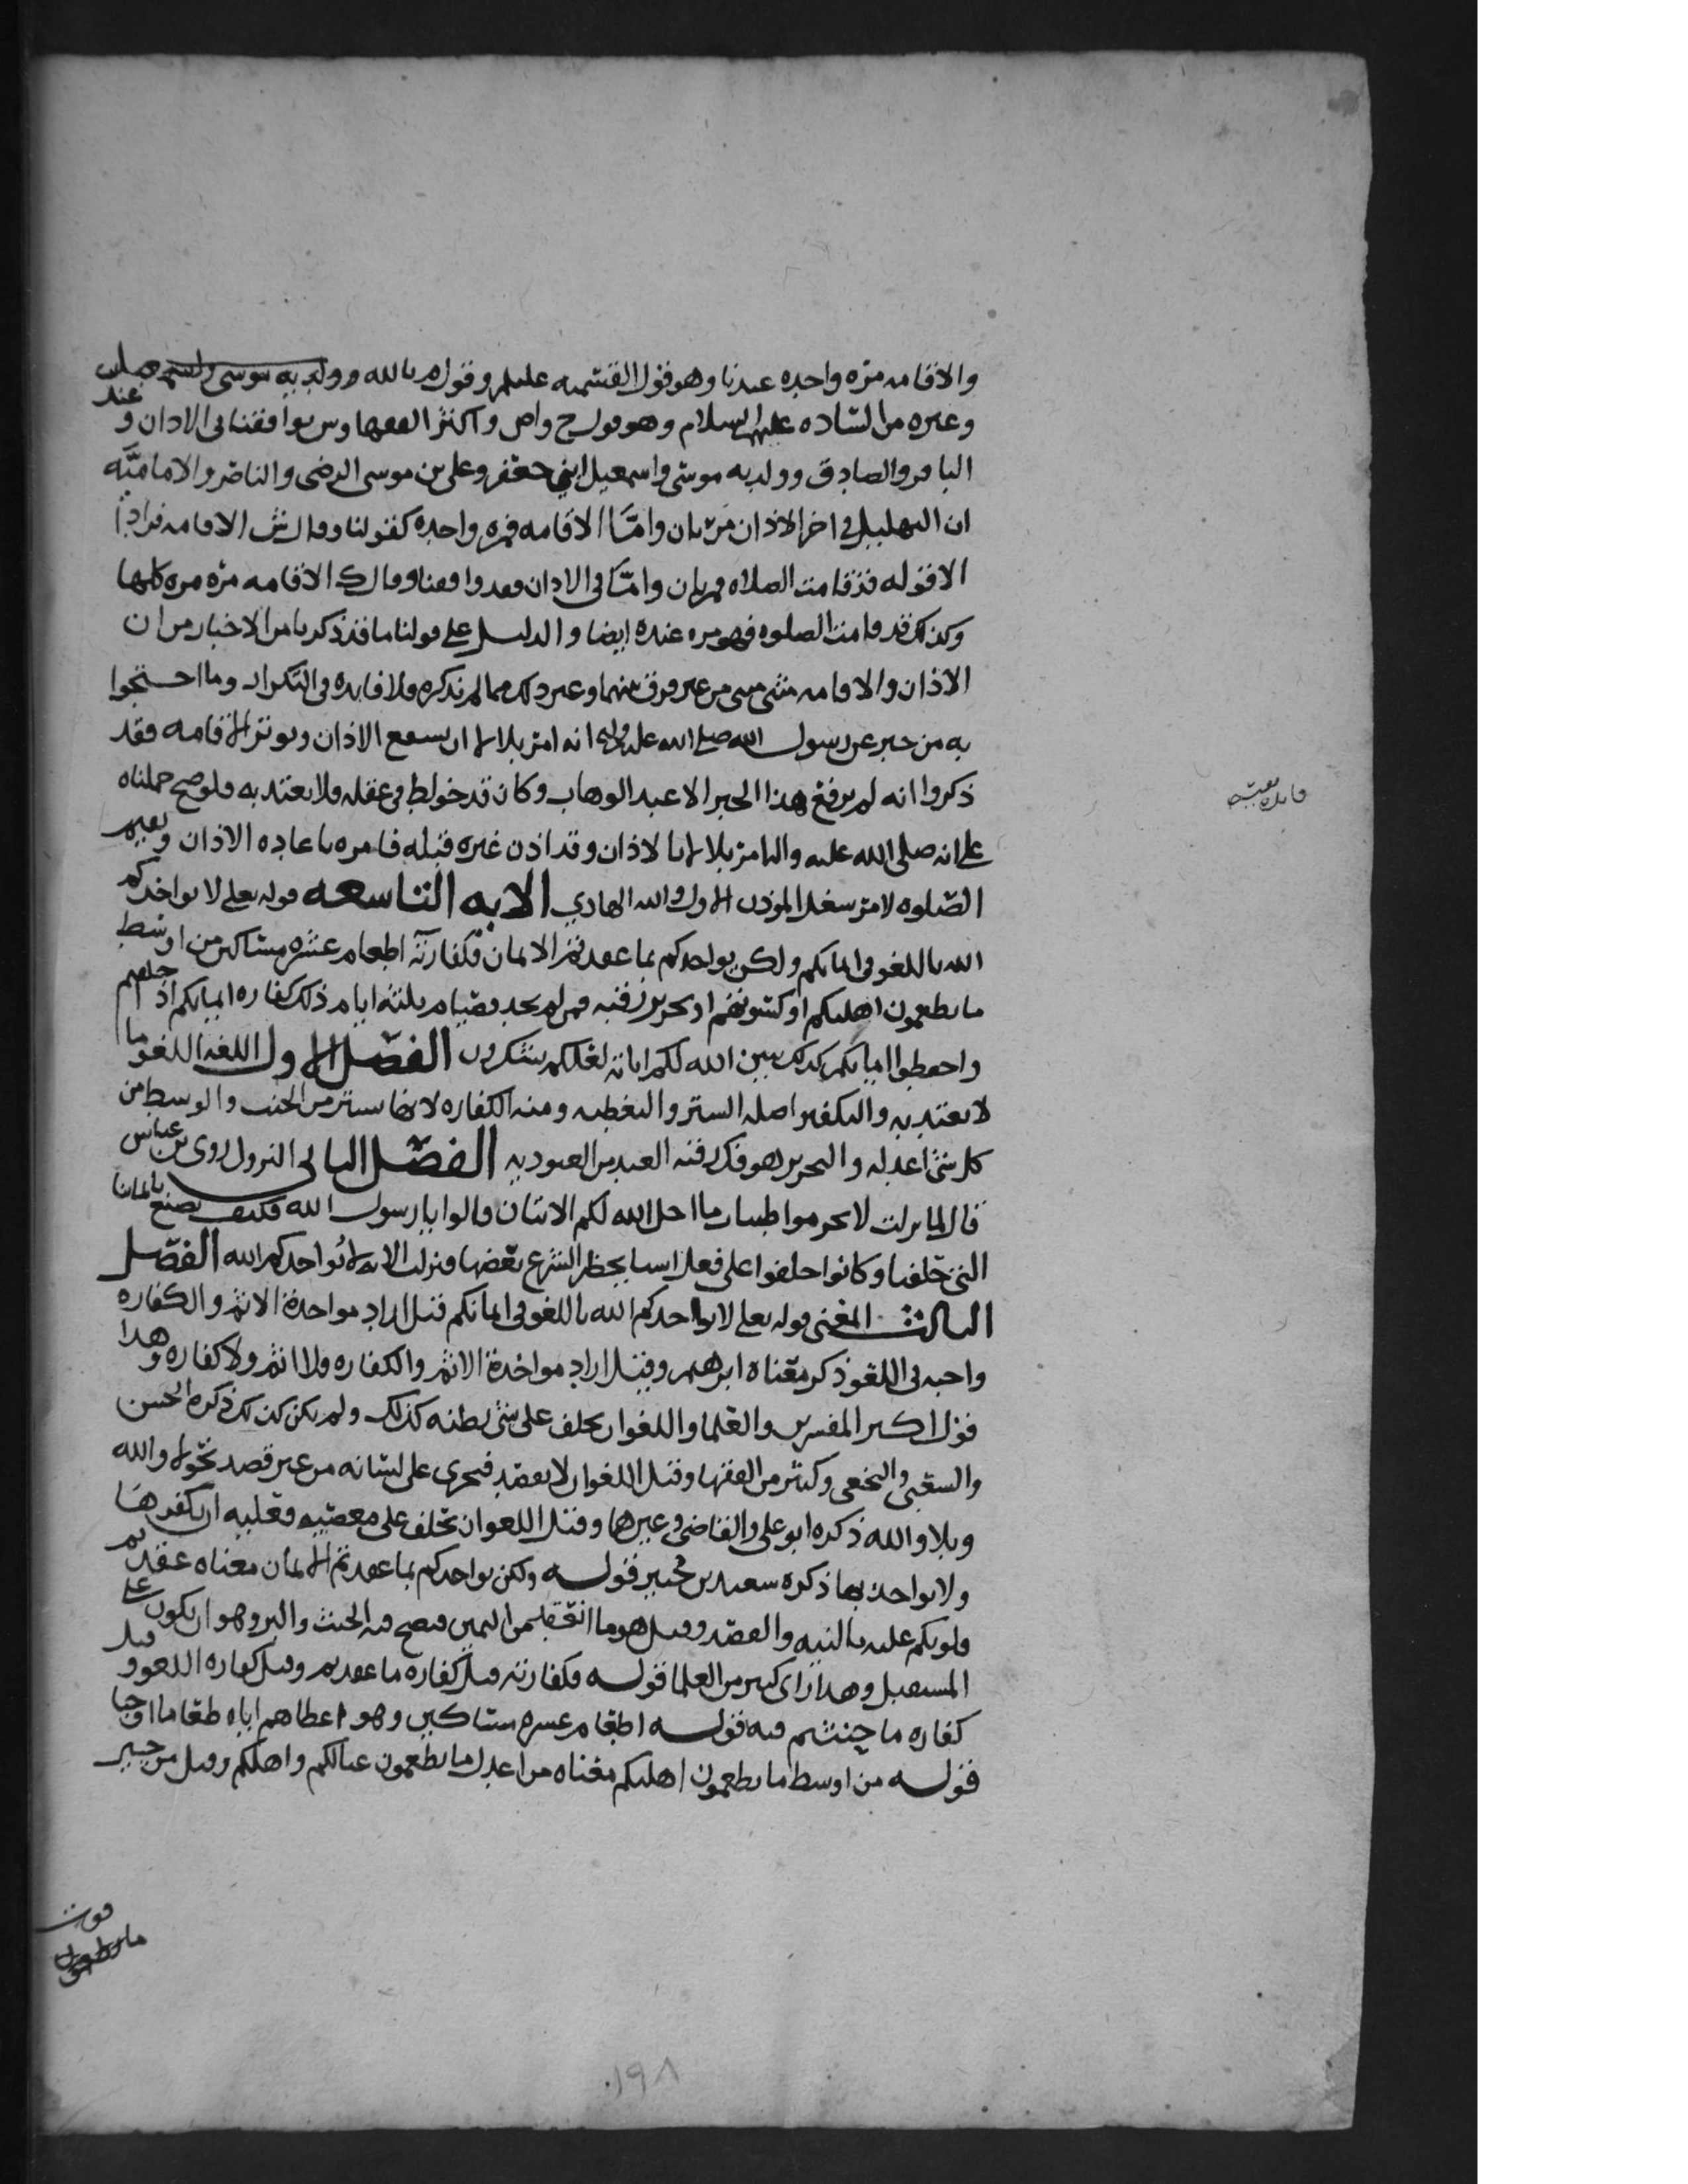 والاقامه مره واحده عندنا وهو قول القسميه عليلم وقول م بالله وولديه موسى واسمعيل
وغيره من الساده عليهم السلام وهو قول ح واص واكثر الفقها وس يوافقنا فى الاذان وعند
الباقر والصادق وولديه موسى واسمعيل ابني جعفر وعلى بن موسى الرضى والناصر والاماميّه
ان التهليل في اخر الاذان مرّتان وامّا الاقامه فمره واحده كقولنا وقال ش الاقامه فرادا
الا قوله قد قامت الصلاه فمرتان وامّا فى الاذان فقد وافقنا وقال ك الاقامه مرّه مره كلها
وكذلك قد قامت الصلوه فهو مره عنده ايضا والدليل على قولنا ما قد ذكرنا من الاخبار من ان
الاذان والاقامه مثنى مثنى من غير فرق بينهما وغير ذلك مما لم نذكره ولا فايده فى التكرار وما احتجوا
به من خبر عن رسول الله صلى الله عليه واله انه امر بلالا ان يسفع الاذان ويوتر الاقامه فقد
ذكروا انه لم يرفع هذا الخبر الا عبد الوهاب وكان قد خولط فى عقله ولا يعتد به ولو صح حملناه
على انه صلى الله عليه واله امر بلالا بالاذان وقد اذن غيره قبله فامره باعاده الاذان ويقيم
الصّلوه لامر سغل الموذن الاول والله الهادي الايه التاسعه قوله تعلى لا يواخذكم
الله باللغو فى ايمانكم ولكن يواخذكم بما عقدتم الايمان فكفارته اطعام عشره مساكين من اوسط
ما تطعمون اهليكم او كسوتهم او تحرير رقبه فمن لم يجد فصيام ثلثه ايام ذلك كفاره ايمانكم اذا حلفتم
واحفظوا ايمانكم كذلك يبين الله لكم اياته لعلكم تشكرون الفصل الاول اللغه اللغو ما
لا يعتد به والتكفير اصله الستر والتغطيه ومنه الكفاره لانها تستر من الحنث والوسط من
كل شى اعدله والتحرير هو فك رقبه العبد من العبوديه الفصل الثانى النزول روى بن عباس
قال لما نزلت لا تحرموا طيبات ما احل الله لكم الايتان قالوا يا رسول الله فكيف نصنع بايماننا
التى حلفنا وكانوا حلفوا على فعل اشيا يحظر الشرع بعضها فنزلت الايه لا يواخذكم الله الفصل
الثالث المعنى قوله تعلى لا يواخذكم الله باللغو فى ايمانكم قيل اراد مواخذة الاثم والكفاره
واجبه فى اللغو ذكر معناه ابرهيم وقيل اراد مواخذة الاثم والكفاره فلا اثم ولا كفاره وهذا
قول اكثر المفسرين والعلما واللغو ان يحلف على شى يظنه كذلك ولم يكن كذلك ذكره الحسن
والشعبي والنخعى وكثير من الفقها وقيل اللغو ان لا يعقد فيجرى على لسانه من غير قصد نحو لا والله
وبلا والله ذكره ابو على والقاضى وغيرهما وقيل اللغو ان تحلف على معصيه فعليه ان يكفرها
ولا يواخذ بها ذكره سعيد بن جبير قوله ولكن يواخذكم بما عقدتم الايمان معناه عقدتم
قلوبكم عليه بالنيه والقصد وقيل هو ما انعقد من اليمين فيصح فيه الحنث والبر وهو ان يكون على
المستقبل وهذا راى كثير من العلما قوله فكفارته قيل كفاره ما عقدتم وقيل كفاره اللغو وقيل
كفاره ما حنثتم فيه قوله اطعام عشره مساكين وهو اعطاهم اياه طعاما
قوله من اوسط ما تطعمون اهليكم معناه من اعدل ما تطعمون عيالكم واهلكم وقيل من خير
قوت
ما تطعمون
١٩٨